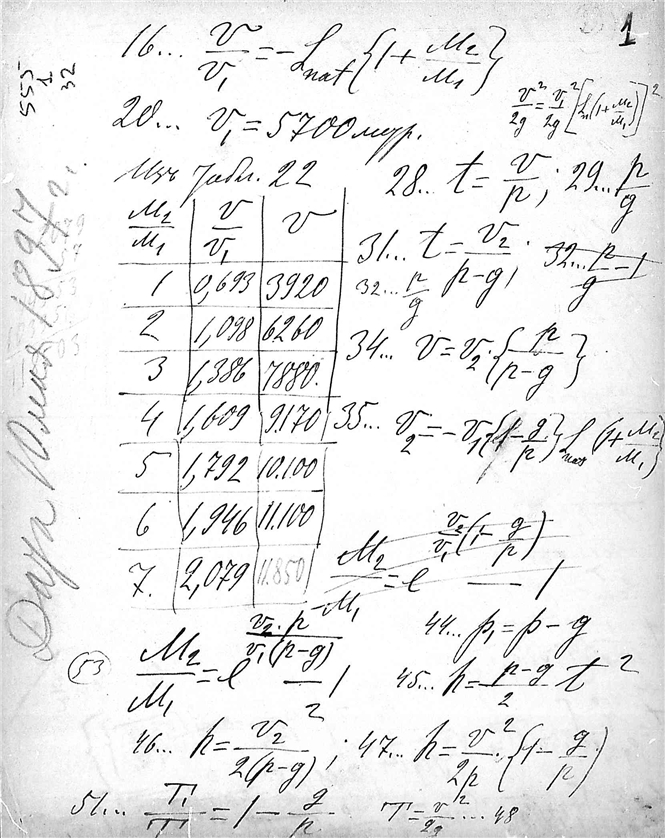 1
555
1
32
16... v/v₁ = - L nat {1 + M₂/M₁}
v²/2g = v₁²/2g [Ln (1 + M₂/M₁)]²
20... v₁ = 5700 метр.
Изъ табл. 22
28... t = v/p; 29... p/g
M₂/M₁ | v/v₁ | v
1 | 0,693 | 3920
2 | 1,098 | 6260
3 | 1,386 | 7880.
4 | 1,609 | 9.170
5 | 1,792 | 10.100
6 | 1,946 | 11.100
7. | 2,079 | 11.850
31... t = v₂/(p-g);
32... p/g - 1
32... p/g
34... v = v₂·{p/(p-g)}
35... v₂ = - v₁{1 - g/p} L nat (1 + M₂/M₁)
M₂/M₁ = e^(v₂/v₁(1 - g/p)) — 1
44... p₁ = p - g
(53) M₂/M₁ = e^(-v₂·p/v₁(p-g)) — 1
45... h = (p-g)/2 t²
46... h = v₂²/2(p-g); 47... h = v²/2p·{1 - g/p}
51... T₁/T = 1 - g/p
T = v²/2g ... 48
1897 г.